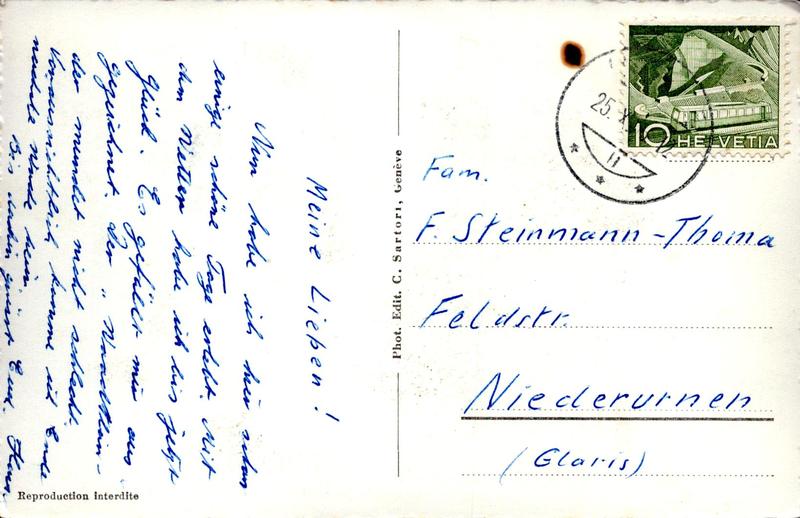 Meine Lieben!
Nun habe ich hier schon
einige schöne Tage erlebt. Mit
dem Wetter habe ich bis jetzt
Glück. Es gefällt mir aus-
gezeichnet. Der „Waadtlän-
der mundet nicht schlecht.
Voraussichtlich komme ich Ende
nächste Woche heim.
Bis dahin grüsst Euch
Phot. Edit. C. Sartori, Genève
Reproduction interdite
25. X.
10 HELVETIA
Fam.
F. Steinmann-Thoma
Feldstr.
Niederurnen
(Glaris)